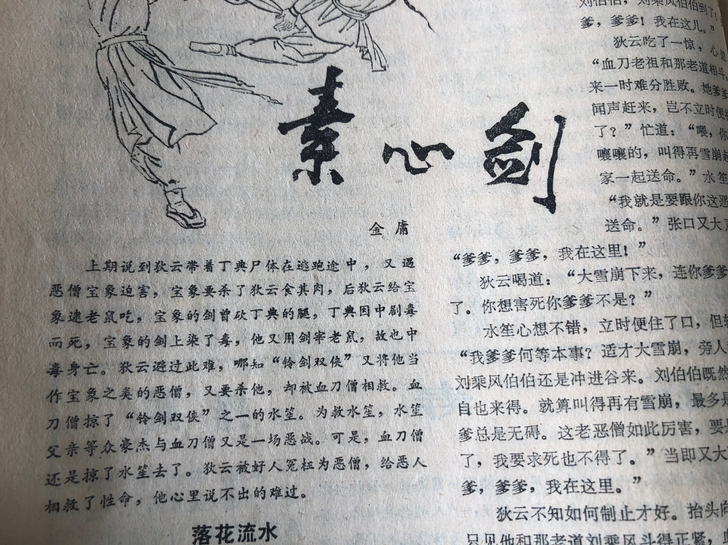 素心剑
金庸
上期说到狄云带着丁典尸体在逃跑途中，又遇
恶僧宝象迫害，宝象要杀了狄云食其肉，后狄云给宝
象逮老鼠吃，宝象的剑曾砍丁典的腿，丁典因中剧毒
而死，宝象的剑上染了毒，他又用剑宰老鼠，故也中
毒身亡。狄云避过此难，哪知“铃剑双侠”又将他当
作宝象之类的恶僧，又要杀他，却被血刀僧相救。血
刀僧掠了“铃剑双侠”之一的水笙。为救水笙，水笙
父亲等众豪杰与血刀僧又是一场恶战。可是，血刀僧
还是掠了水笙去了。狄云被好人冤枉为恶僧，给恶人
相救了性命，他心里说不出的难过。
落花流水
刘伯伯，刘乘风伯伯到了
爹，爹爹！我在这儿。”
狄云吃了一惊，心里
“血刀老祖和那老道相斗
来一时难分胜败。她爹爹
闻声赶来，岂不立时便
了？”忙道：“喂，你
嚷嚷的，叫得再雪崩
家一起送命。”水笙
“我就是要跟你这恶
送命。”张口又大
“爹爹，爹爹，我在这里！”
狄云喝道：“大雪崩下来，连你爹爹
了。你想害死你爹爹不是？”
水笙心想不错，立时便住了口，但
“我爹爹何等本事？适才大雪崩，旁人
刘乘风伯伯还是冲进谷来。刘伯伯既然
自也来得。就算叫得再有雪崩，最多是
爹总是无碍。这老恶僧如此厉害，要是
了，我要求死也不得了。”当即又大
爹，爹爹，我在这里。”
狄云不知如何制止才好。抬头向
只见他和那老道刘乘风斗得正紧，